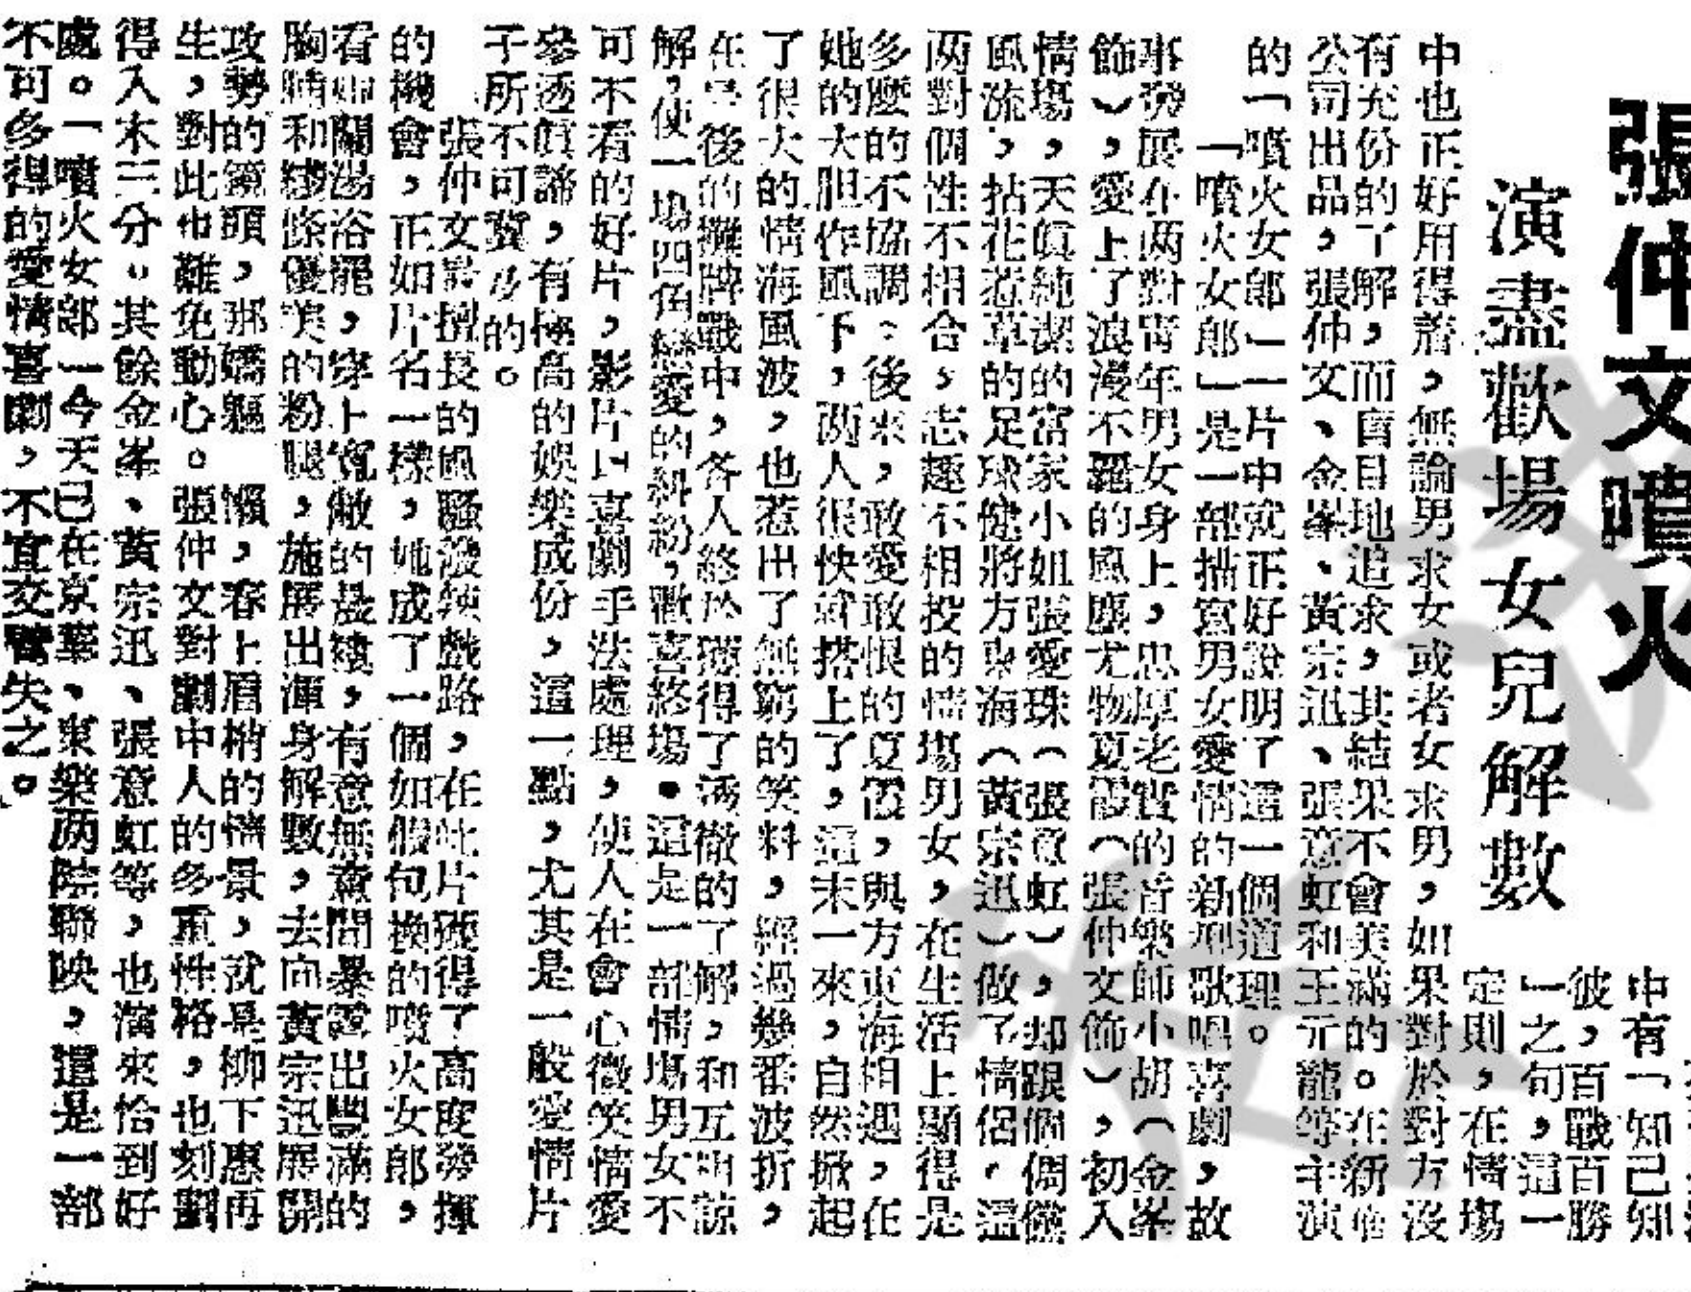 張仲文噴火
演盡歡場女兒解數
中有「知己知
彼,百戰百勝
」之句,這一
定則,在情場
中也正好用得着,無論男求女或者女求男,如果對於對方沒
有充份的了解,而盲目地追求,其結果不會美滿的。在新華
公司出品,張仲文、金峯、黃宗迅、張意虹和王元龍等主演
的「噴火女郎」一片中就正好說明了這一個道理。
「噴火女郎」是一部描寫男女愛情的新型歌唱喜劇,故
事發展在兩對青年男女身上,忠厚老實的音樂師小胡(金峯
飾),愛上了浪漫不羈的風塵尤物夏霞(張仲文飾),初入
情場,天眞純潔的富家小姐張愛珠(張意虹),却跟倜儻
風流,拈花惹草的足球健將方東海(黃宗迅)做了情侶,這
兩對個性不相合,志趣不相投的情塲男女,在生活上顯得是
多麼的不協調。後來,敢愛敢恨的夏霞,與方東海相遇,在
她的大胆作風下,兩人很快就搭上了,這末一來,自然掀起
了很大的情海風波,也惹出了無窮的笑料,經過幾番波折,
在最後的攤牌戰中,各人終於獲得了透徹的了解,和互相諒
解,使一塲四角戀愛的糾紛,歡喜終塲。這是一部情塲男女不
可不看的好片,影片以喜劇手法處理,使人在會心微笑情愛
參透眞諦,有極高的娛樂成份,這一點,尤其是一般愛情片
子所不可冀及的。
張仲文最擅長的風騷潑辣戲路,在此片獲得了高度發揮
的機會,正如片名一樣,她成了一個如假包換的噴火女郎,
看她關湯浴罷,穿上寬敞的晨褸,有意無意間暴露出豐滿的
胸脯和綫條優美的粉腿,施展出渾身解數,去向黃宗迅展開
攻勢的鏡頭,那嬌軀 懶,春上眉梢的情景,就是柳下惠再
生,對此也難免動心。張仲文對劇中人的多重性格,也刻劃
得入木三分。其餘金峯、黃宗迅、張意虹等,也演來恰到好
處。「噴火女郎」今天已在京華、東樂兩院聯映,這是一部
不可多得的愛情喜劇,不宜交臂失之。